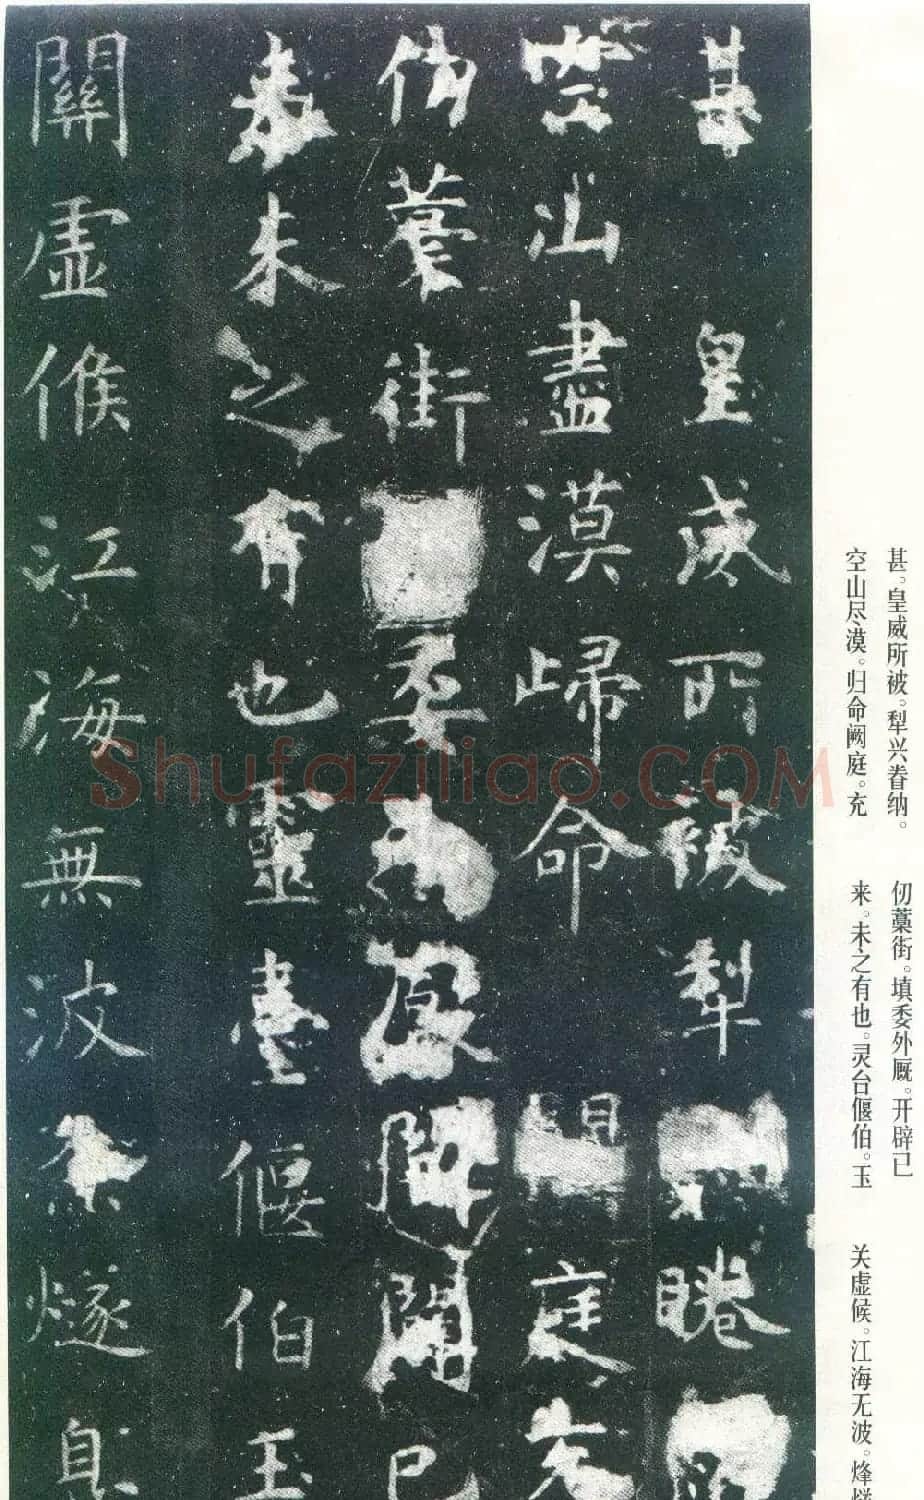 甚皇威所被犁睠
空山盡漠歸命庭充
仞藁街委闢已
來未之有也靈臺偃伯玉
關虛候江海無波烽燧息
甚。皇威所被。犁兴眷纳。
空山尽漠。归命阙庭。充
仞藁街。填委外厩。开辟已
来。未之有也。灵台偃伯。玉
关虚候。江海无波。烽
Shufaziliao.COM